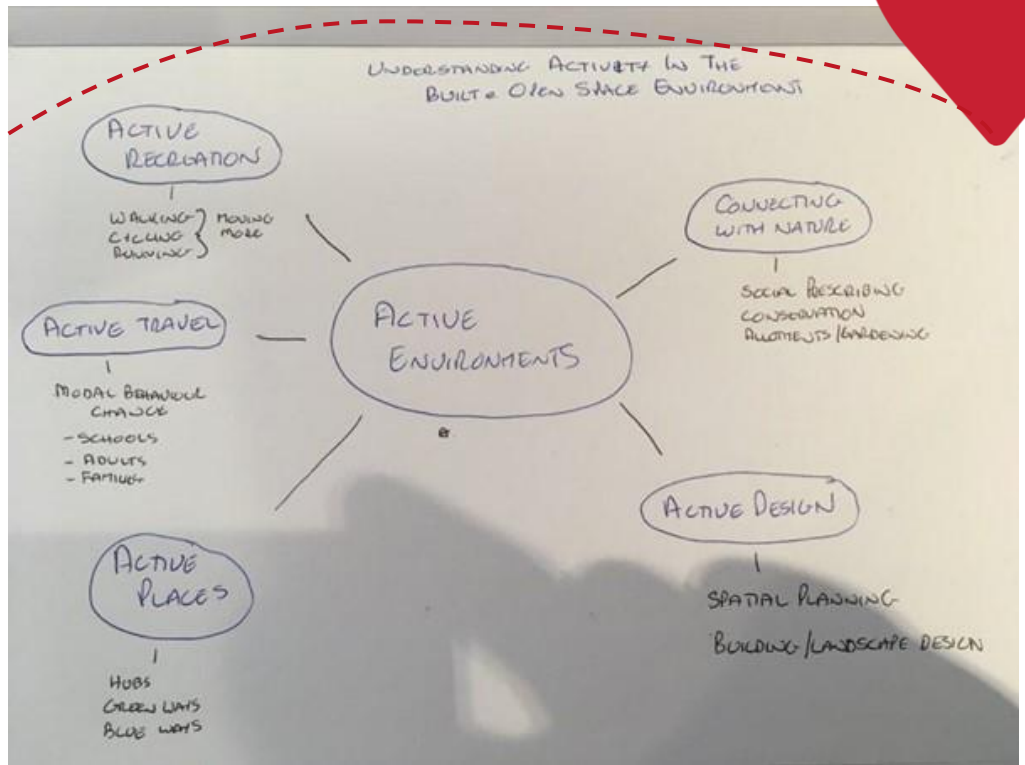 UNDERSTANDING ACTIVITY IN THE
BUILT & OPEN SPACE ENVIRONMENT
ACTIVE
RECREATION
WALKING
CYCLING
RUNNING
MOVING
MORE
ACTIVE TRAVEL
MODAL BEHAVIOUR
CHANGE
- SCHOOLS
- ADULTS
- FAMILIES
ACTIVE
PLACES
HUBS
GREEN WAYS
BLUE WAYS
ACTIVE
ENVIRONMENTS
CONNECTING
WITH NATURE
SOCIAL PRESCRIBING
CONSERVATION
ALLOTMENTS/GARDENING
ACTIVE DESIGN
SPATIAL PLANNING
BUILDING/LANDSCAPE DESIGN